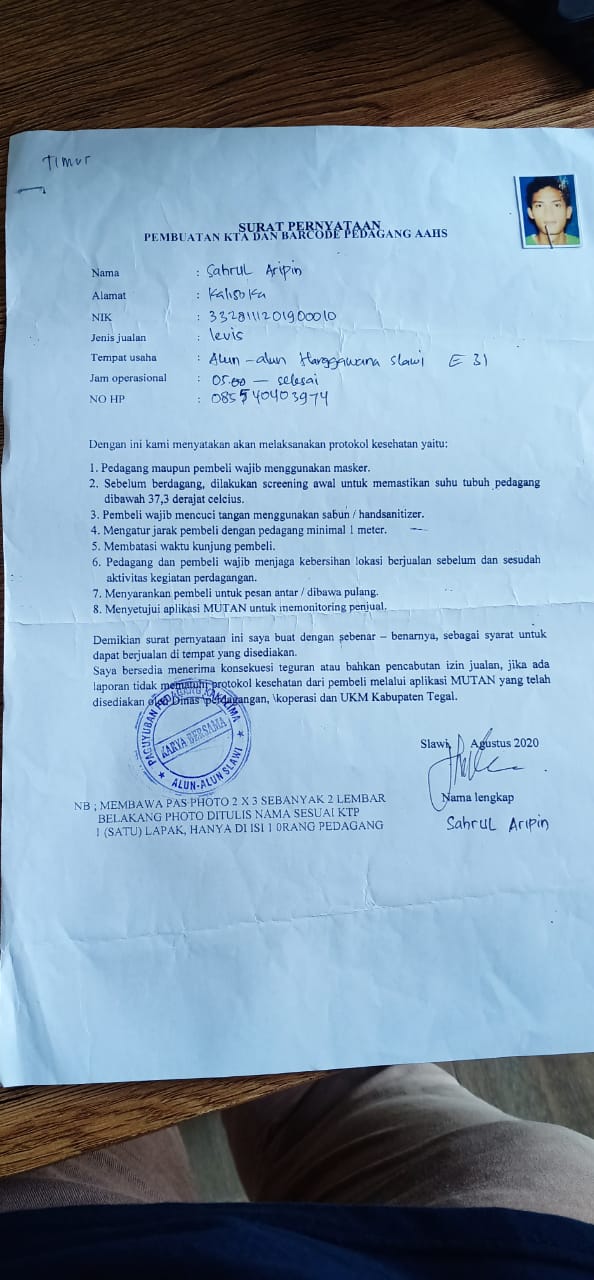 Timur
SURAT PERNYATAAN
PEMBUATAN KTA DAN BARCODE PEDAGANG AAHS
Nama : Sahrul Aripin
Alamat : Kalisoka
NIK : 3328111201900010
Jenis jualan : levis
Tempat usaha : Alun-alun Hanggawana Slawi E 31
Jam operasional : 05.00 — selesai
NO HP : 085540403974
Dengan ini kami menyatakan akan melaksanakan protokol kesehatan yaitu:
1. Pedagang maupun pembeli wajib menggunakan masker.
2. Sebelum berdagang, dilakukan screening awal untuk memastikan suhu tubuh pedagang
dibawah 37,3 derajat celcius.
3. Pembeli wajib mencuci tangan menggunakan sabun / handsanitizer.
4. Mengatur jarak pembeli dengan pedagang minimal 1 meter.
5. Membatasi waktu kunjung pembeli.
6. Pedagang dan pembeli wajib menjaga kebersihan lokasi berjualan sebelum dan sesudah
aktivitas kegiatan perdagangan.
7. Menyarankan pembeli untuk pesan antar / dibawa pulang.
8. Menyetujui aplikasi MUTAN untuk memonitoring penjual.
Demikian surat pernyataan ini saya buat dengan sebenar – benarnya, sebagai syarat untuk
dapat berjualan di tempat yang disediakan.
Saya bersedia menerima konsekuesi teguran atau bahkan pencabutan izin jualan, jika ada
laporan tidak memenuhi protokol kesehatan dari pembeli melalui aplikasi MUTAN yang telah
disediakan oleh Dinas \perdagangan, \koperasi dan UKM Kabupaten Tegal.
PAGUYUBAN PEDAGANG KAKI LIMA
KARYA BERSAMA
ALUN-ALUN SLAWI
Slawi, Agustus 2020
Nama lengkap
Sahrul Aripin
NB ; MEMBAWA PAS PHOTO 2 X 3 SEBANYAK 2 LEMBAR
BELAKANG PHOTO DITULIS NAMA SESUAI KTP
1 (SATU) LAPAK, HANYA DI ISI 1 0RANG PEDAGANG